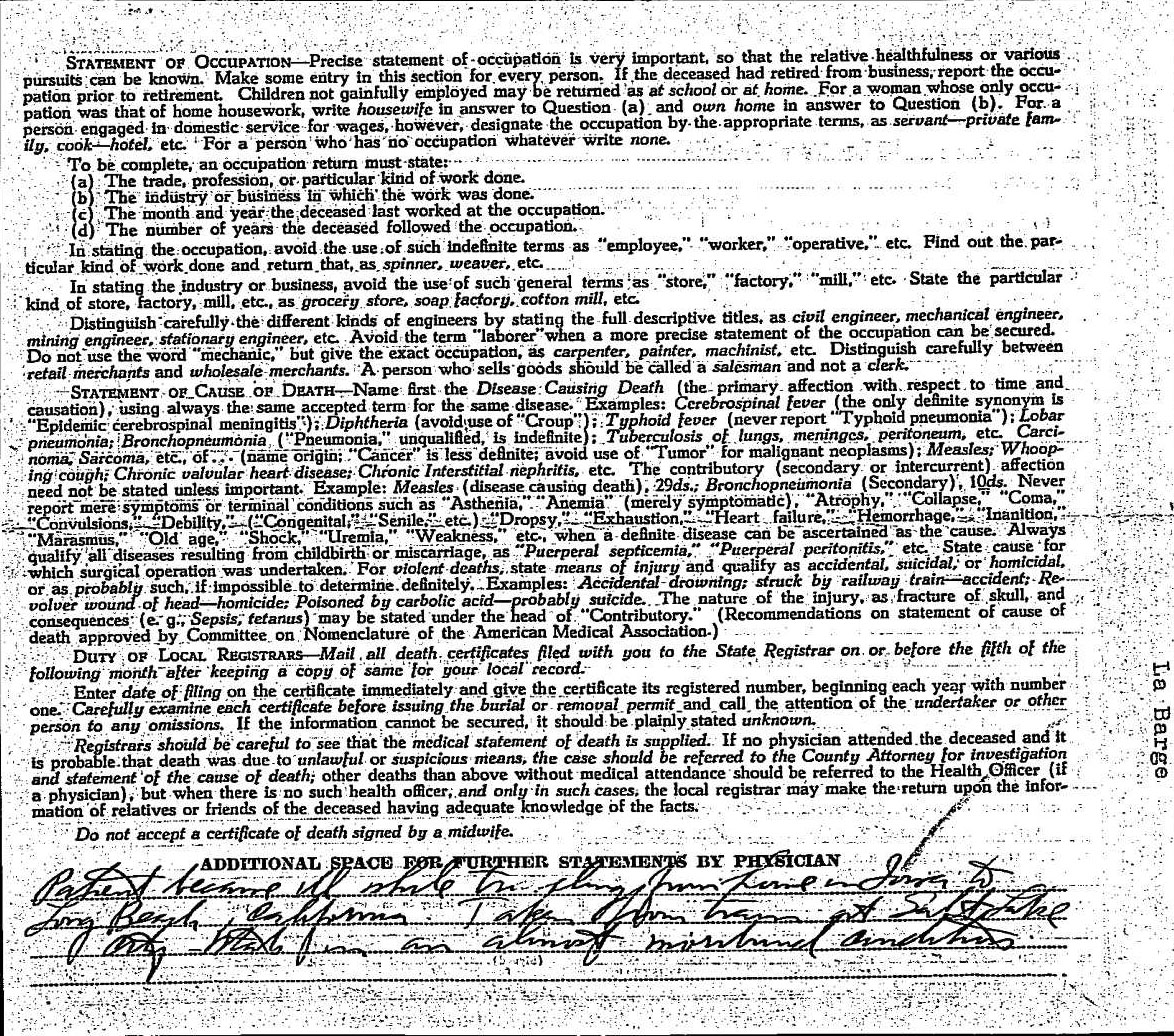 STATEMENT OF OCCUPATION—Precise statement of occupation is very important, so that the relative healthfulness or various
pursuits can be known. Make some entry in this section for every person. If the deceased had retired from business, report the occu-
pation prior to retirement. Children not gainfully employed may be returned as at school or at home. For a woman whose only occu-
pation was that of home housework, write housewife in answer to Question (a) and own home in answer to Question (b). For a
person engaged in domestic service for wages, however, designate the occupation by the appropriate terms, as servant—private fam-
ily, cook—hotel, etc. For a person who has no occupation whatever write none.
To be complete, an occupation return must state:
(a) The trade, profession, or particular kind of work done.
(b) The industry or business in which the work was done.
(c) The month and year the deceased last worked at the occupation.
(d) The number of years the deceased followed the occupation.
In stating the occupation, avoid the use of such indefinite terms as "employee," "worker," "operative," etc. Find out the par-
ticular kind of work done and return that, as spinner, weaver, etc.
In stating the industry or business, avoid the use of such general terms as "store," "factory," "mill," etc. State the particular
kind of store, factory, mill, etc., as grocery store, soap factory, cotton mill, etc.
Distinguish carefully the different kinds of engineers by stating the full descriptive titles, as civil engineer, mechanical engineer,
mining engineer, stationary engineer, etc. Avoid the term "laborer" when a more precise statement of the occupation can be secured.
Do not use the word "mechanic," but give the exact occupation, as carpenter, painter, machinist, etc. Distinguish carefully between
retail merchants and wholesale merchants. A person who sells goods should be called a salesman and not a clerk.
STATEMENT OF CAUSE OF DEATH—Name first the Disease Causing Death (the primary affection with respect to time and
causation), using always the same accepted term for the same disease. Examples: Cerebrospinal fever (the only definite synonym is
"Epidemic cerebrospinal meningitis"); Diphtheria (avoid use of "Croup"); Typhoid fever (never report "Typhoid pneumonia"); Lobar
pneumonia; Bronchopneumonia ("Pneumonia," unqualified, is indefinite); Tuberculosis of lungs, meninges, peritoneum, etc. Carci-
noma, Sarcoma, etc., of . . . (name origin; "Cancer" is less definite; avoid use of "Tumor" for malignant neoplasms); Measles; Whoop-
ing cough; Chronic valvular heart disease; Chronic Interstitial nephritis, etc. The contributory (secondary or intercurrent) affection
need not be stated unless important. Example: Measles (disease causing death), 29ds.; Bronchopneumonia (Secondary), 10ds. Never
report mere symptoms or terminal conditions such as "Asthenia," "Anemia" (merely symptomatic), "Atrophy," "Collapse," "Coma,"
"Convulsions," "Debility," ("Congenital," "Senile," etc.) "Dropsy," "Exhaustion," "Heart failure," "Hemorrhage," "Inanition,"
"Marasmus," "Old age," "Shock," "Uremia," "Weakness," etc., when a definite disease can be ascertained as the cause. Always
qualify all diseases resulting from childbirth or miscarriage, as "Puerperal septicemia," "Puerperal peritonitis," etc. State cause for
which surgical operation was undertaken. For violent deaths, state means of injury and qualify as accidental, suicidal, or homicidal,
or as probably such, if impossible to determine definitely. Examples: Accidental drowning; struck by railway train—accident; Re-
volver wound of head—homicide; Poisoned by carbolic acid—probably suicide. The nature of the injury, as fracture of skull, and
consequences (e. g., Sepsis, tetanus) may be stated under the head of "Contributory." (Recommendations on statement of cause of
death approved by Committee on Nomenclature of the American Medical Association.)
DUTY OF LOCAL REGISTRARS—Mail all death certificates filed with you to the State Registrar on or before the fifth of the
following month after keeping a copy of same for your local record.
Enter date of filing on the certificate immediately and give the certificate its registered number, beginning each year with number
one. Carefully examine each certificate before issuing the burial or removal permit and call the attention of the undertaker or other
person to any omissions. If the information cannot be secured, it should be plainly stated unknown.
Registrars should be careful to see that the medical statement of death is supplied. If no physician attended the deceased and it
is probable that death was due to unlawful or suspicious means, the case should be referred to the County Attorney for investigation
and statement of the cause of death; other deaths than above without medical attendance should be referred to the Health Officer (if
a physician), but when there is no such health officer, and only in such cases, the local registrar may make the return upon the infor-
mation of relatives or friends of the deceased having adequate knowledge of the facts.
Do not accept a certificate of death signed by a midwife.
ADDITIONAL SPACE FOR FURTHER STATEMENTS BY PHYSICIAN
Patient became ill while traveling from home in Iowa to
Long Beach, California. Taken from train at Salt Lake
City Utah in an almost moribund condition.
La Barge